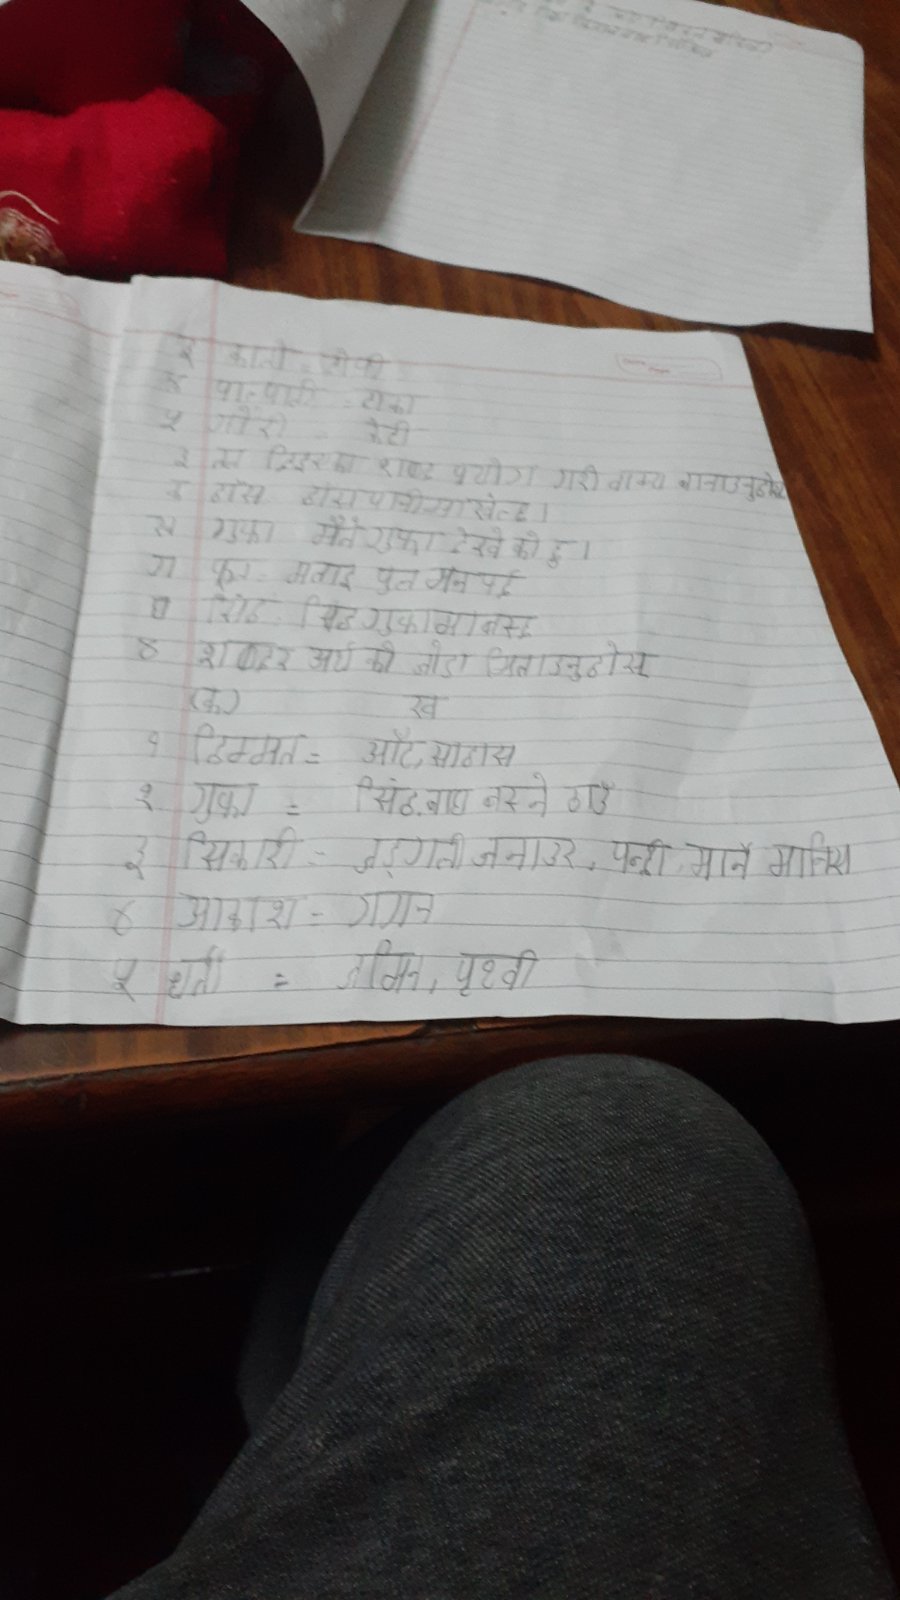 ३ कालो = टोपी
४ पाल्पाली = ढाका
५ गोरी = केटी
३ तल दिइएका शब्द प्रयोग गरी वाक्य बानाउनुहोस
क हाँस हाँस पानीमा खेल्छ ।
ख गुफा मैले गुफा देखेको छु ।
ग फूल मलाइ फुल मन पर्छ
घ सिंह सिंह गुफामा बस्छ
४ शब्दर अर्थ को जोडा मिलाउनुहोस
(क) ख
१ हिम्मत = आँट, साहास
२ गुफा = सिंह, बाघ बस्ने ठाउँ
३ सिकारी = जङ्गली जनाउर, पन्छी मार्ने मानिस
४ आकाश = गगन
५ धर्ती = जमिन, पृथ्वी